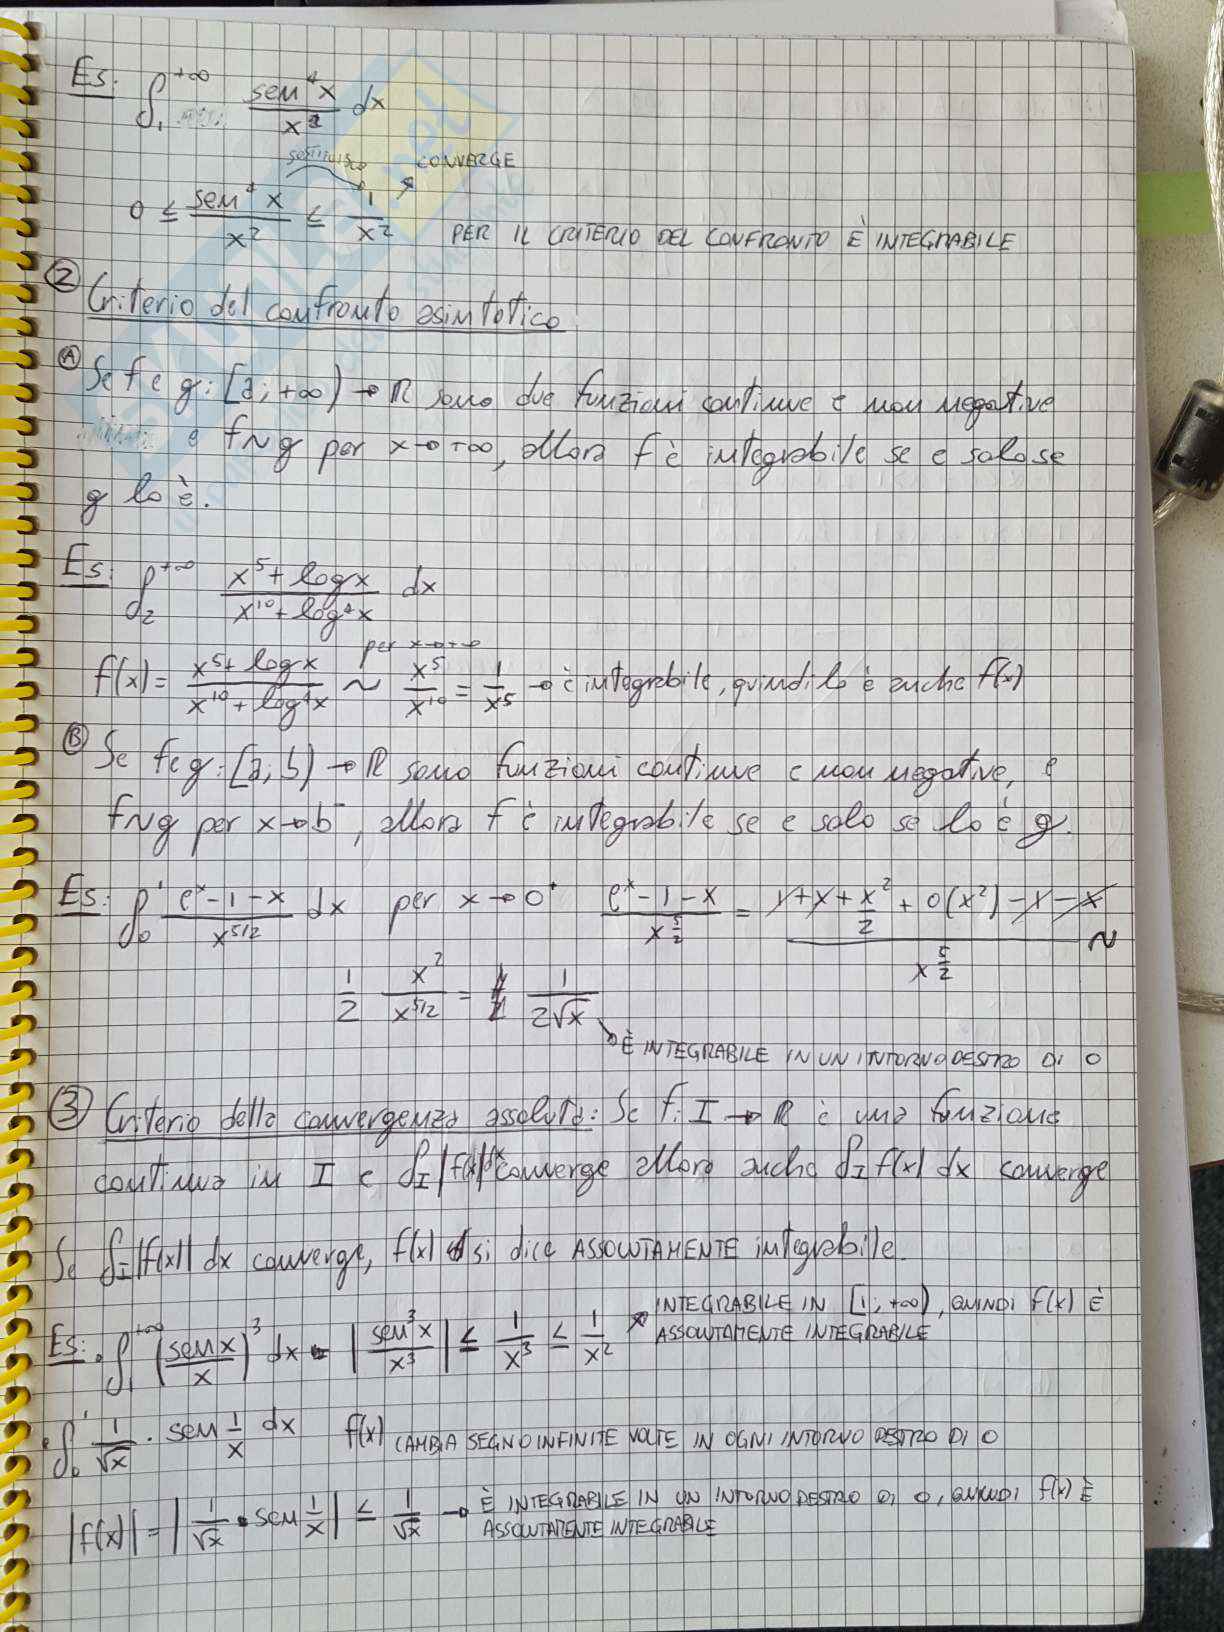 Es: ∫₁^{+∞} sen⁴x / x² dx
sostituisco CONVERGE
0 ≤ sen⁴x / x² ≤ 1 / x² PER IL CRITERIO DEL CONFRONTO È INTEGRABILE
② Criterio del confronto asintotico
Ⓐ Se f e g: [a; +∞) → ℝ sono due funzioni continue e non negative
e f ~ g per x → +∞, allora f è integrabile se e solo se
g lo è.
Es: ∫₂^{+∞} x⁵ + log x / x¹⁰ + log⁴x dx
per x → +∞
f(x) = x⁵ + log x / x¹⁰ + log⁴x ~ x⁵ / x¹⁰ = 1 / x⁵ → è integrabile, quindi lo è anche f(x)
Ⓑ Se f e g: [a; b) → ℝ sono funzioni continue e non negative, e
f ~ g per x → b⁻, allora f è integrabile se e solo se lo è g.
Es: ∫₀¹ eˣ - 1 - x / x^{5/2} dx per x → 0⁺ eˣ - 1 - x / x^{5/2} = 1 + x + x²/2 + o(x²) - 1 - x / x^{5/2} ~
1/2 x² / x^{5/2} = 1 / 2√x
→ È INTEGRABILE IN UN INTORNO DESTRO DI 0
③ Criterio della convergenza assoluta: Se f: I → ℝ è una funzione
continua in I e ∫_I |f(x)| dx converge allora anche ∫_I f(x) dx converge
Se ∫_I |f(x)| dx converge, f(x) si dice ASSOLUTAMENTE integrabile.
Es: • ∫₁^{+∞} (sen x / x)³ dx - |sen³x / x³| ≤ 1 / x³ ≤ 1 / x² INTEGRABILE IN [1; +∞), QUINDI f(x) È
ASSOLUTAMENTE INTEGRABILE
• ∫₀¹ 1 / √x · sen 1/x dx f(x) CAMBIA SEGNO INFINITE VOLTE IN OGNI INTORNO DESTRO DI 0
|f(x)| = |1 / √x · sen 1/x| ≤ 1 / √x → È INTEGRABILE IN UN INTORNO DESTRO DI 0, QUINDI f(x) È
ASSOLUTAMENTE INTEGRABILE